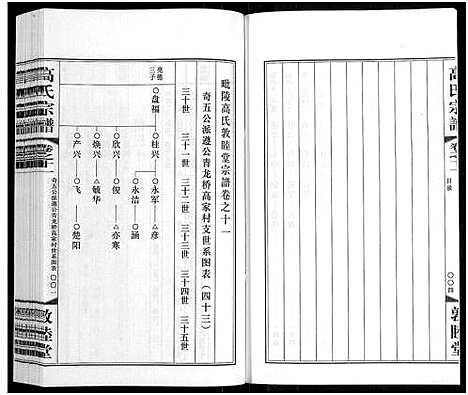 高氏宗譜
卷之十一
目录
〇〇四
敦睦堂
毗陵高氏敦睦堂宗谱卷之十一
奇五公派遊公青龙桥高家村支世系图表（四十三）
三十世 三十一世 三十二世 三十三世 三十四世 三十五世
亮德三子
〇盘福 〇桂兴 〇永军 △彦
〇永洁 〇涵
〇欣兴 〇俊 △亦寒
〇焕兴 △毓华
〇产兴 〇飞 〇楚阳
高氏宗譜
卷之十一
奇五公派遊公青龙桥高家村世系图表
〇〇一
敦睦堂